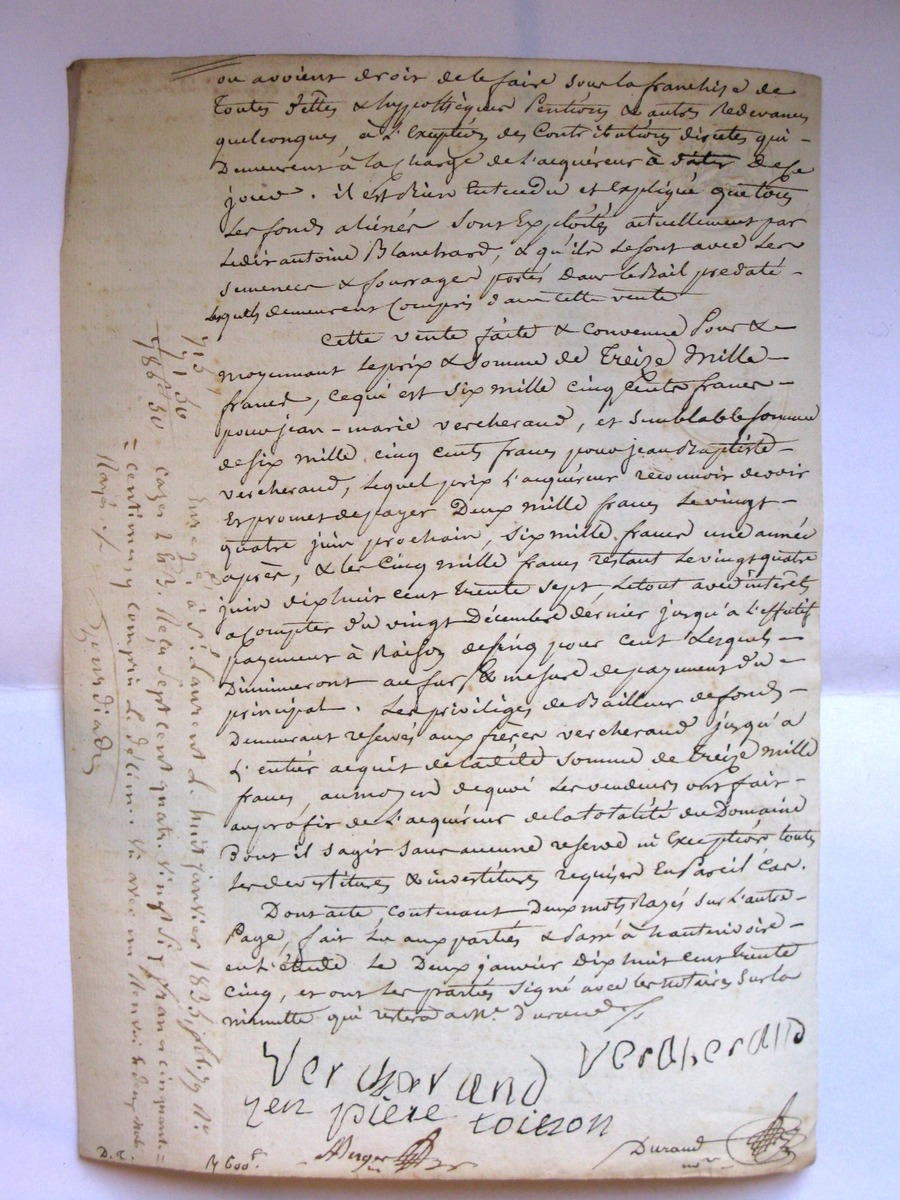 ou avoient droit de le faire sous la franchise de
toutes dettes & hypothèques Pentions & autres Redevances
quelconques à L'Exeption des Contributions directes qui
Demeurent à la Charge de L'acquéreur à dater de Ce
jour. il est bien Entendu et Expliqué que tous
Les fonds aliénés Sont Exploités actuellement par
Ledit antoine Blanchard, & qu'ils Le sont avec Les
semences & fourrages portés dans le Bail predaté
Lesquels demeurent Compris dans cette vente
Cette vente faite & Convenue Pour &
moyennant Le prix & Somme de Treize mille
francs, Ce qui est Six mille Cinq Cents francs
pour jean-marie vercherand, et Semblable Somme
de six mille cinq cents francs pour jean Baptiste
vercherand, Lequel prix L'acquéreur reconnoit devoir
Et promet de payer Deux mille francs Le vingt
quatre juin prochain, Six mille francs une année
après, & les Cinq mille francs restant Le vingt quatre
juin dix huit cent trente sept, Le tout avec intérêts
a Compter du vingt Décembre dernier jusqu'à L'effectif
payement à Raison de cinq pour cent Lesquels
Diminueront au fur & mesure de payement du
principal. Les priviliges de Bailleur de fonds
Demeurant reservés aux frères vercherand jusqu'à
L'entier acquit de ladite Somme de Treize mille
francs, au moyen de quoi Les vendeurs ont fait
au profit de L'acquéreur de la totalité du Domaine
Dont il s'agit Sans aucune reserve ni Exception toutes
Les devestitures & investitures requises En Pareil Cas.
Dont acte, Contenant Deux mots Rayés Sur L'autre
Page, fait Lu aux parties & Passé à hauterivoire
en L'étude Le Deux janvier Dix huit Cent trente
Cinq, et ont Les parties Signé avec Les notaires Sur la
minutte qui restera a Me. Durand
Vercherand Vercherand
jen pière toinon
Durand
nore
D. R.
715
71 50
786 50
Enregé à St. Laurent L. huit janvier 1835 fo. 79 Ro.
cases 2 & 3. Reçu sept cent quatre vingt six francs cinquante
centimes y compris Le décime. Vu avec un Renvoi & deux mots
Rayés